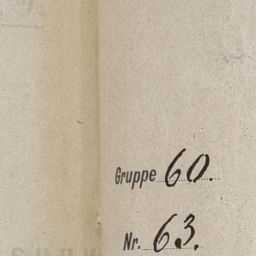 Gruppe 60.
Nr. 63.